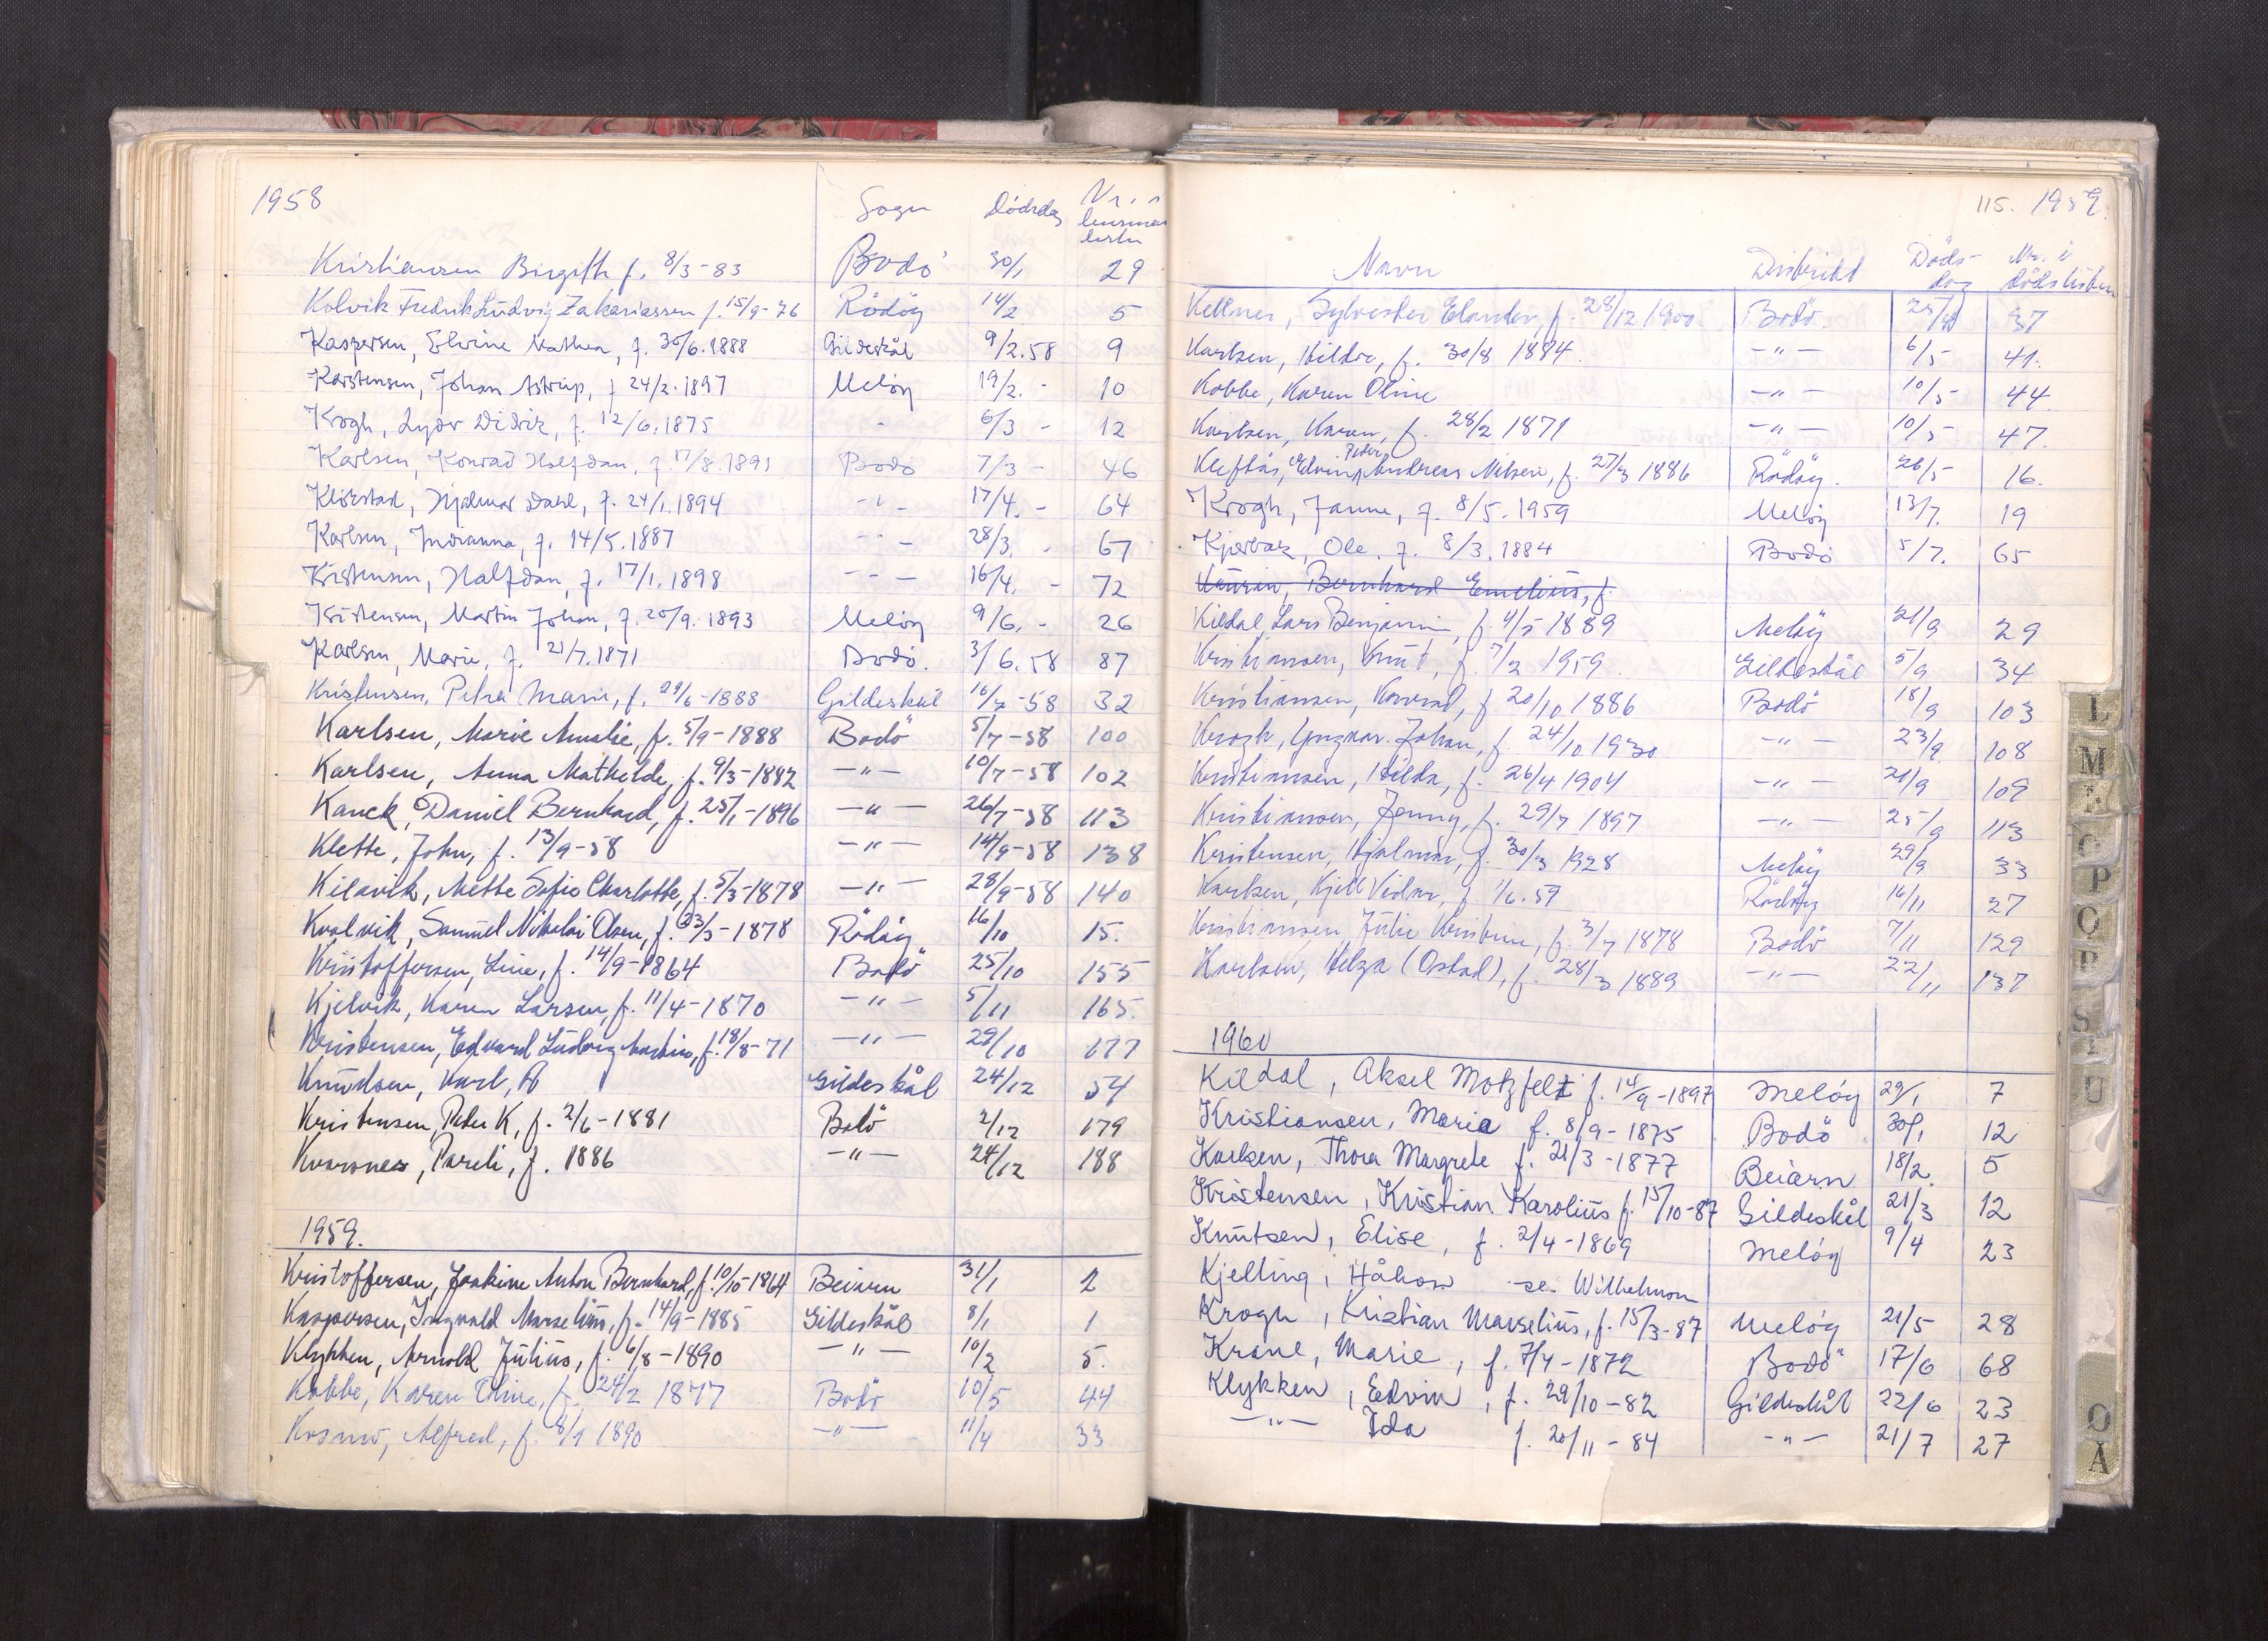 1958
Sogn Dödsdag Nr. i lensmannslisten
Kristiansen Birgith f. 8/3-83 Bodö 30/1 29
Kolvik Fredrik Ludvig Zakariassen f. 15/9-76 Rödöy 14/2 5
Kaspersen, Elvine Mathea, f. 30/6.1888 Gildeskål 9/2.58 9
Karstensen, Johan Astrup, f 24/2.1897 Melöy 19/2. - 10
Krogh, Lyder Didrik, f. 12/6.1875 - 6/3 - 12
Karlsen, Konrad Halfdan, f. 17/8.1891 Bodö 7/3 - 46
Klörstad, Hjalmar Dahl, f. 24/1.1894 -"- 17/4. - 64
Karlsen, Indianna, f. 14/5.1887 -"- 28/3. - 67
Kristensen, Halfdan, f. 17/1.1898 -"- 16/4. - 72
Kristensen, Martin Johan, f. 20/9.1893 Melöy 9/6. - 26
Karlsen, Marie, f. 21/7.1871 Bodö. 3/6.58 87
Kristensen, Petra Marie, f. 29/6-1888 Gildeskål 16/7-58 32
Karlsen, Marie Amalie, f. 5/9-1888 Bodö 5/7-58 100
Karlsen, Anna Mathilde, f. 9/3-1882 -"- 10/7-58 102
Kanck, Daniel Bernhard, f. 25/1-1896 -"- 26/7-58 113
Klette, John, f. 13/9-58 -"- 14/9-58 138
Kilavik, Mette Sofie Charlotte, f. 5/3-1878 -"- 28/9-58 140
Kvalvik, Samuel Nikolai Olsen, f. 23/3-1878 Rödöy 16/10 15.
Kristoffersen, Line, f. 14/9-1864 Bodö 25/10 155
Kjelvik, Karen Larsen, f. 11/4-1870 -"- 5/11 165.
Kristensen, Edvard Ludvig Martin, f. 18/8-71 -"- 29/10 177
Knudsen, Karl, Gildeskål 24/12 54
Kristensen, Peter K, f. 2/6-1881 Bodö 2/12 179
Kvarsnes, Pareli, f. 1886 -"- 24/12 188
1959.
Kristoffersen, Joakine Anton Bernhard, f. 10/10-1864 Beiarn 31/1 2
Kaspersen, Ingvald Marselius, f. 14/9-1885 Gildeskål 8/1 1
Klykken, Arnold Julius, f. 6/8-1890 -"- 10/2 5.
Kobbe, Karen Oline, f. 24/2 1877 Bodö 10/5 44
Kosmo, Alfred, f. 8/1 1890 -"- 11/4 33
115. 1959.
Navn Distrikt Döds-dag Nr. i dödslisten
Kellner, Sylvester Elander, f. 28/12 1900 Bodö. 25/4 37
Karlsen, Hilda, f. 30/8 1884. -"- 6/5 41.
Kobbe, Karen Oline -"- 10/5 44.
Karlsen, Karen, f. 28/2 1871 -"- 10/5 47.
Kleftås, Edvin Peder Andreas Nilsen, f. 27/3 1886 Rödöy. 26/5 16.
Krogh, Janne, f. 8/5.1959 Melöy 13/7. 19
Kjerbak, Ole, f. 8/3.1884 Bodö 5/7. 65
Bernhard Emelius, f.
Kildal Lars Benjamin, f. 4/5 1889 Melöy 21/9 29
Kristiansen, Knut, f. 7/2 1959. Gildeskål 5/9 34
Kristiansen, Konrad, f 20/10 1886 Bodö 18/9 103
Krogh, Yngvar Johan, f. 24/10 1930 -"- 23/9. 108
Kristiansen, Hilda, f. 26/4 1904 -"- 21/9 109
Kristiansen, Jenny, f. 29/7 1897 -"- 25/9 113
Kristensen, Hjalmar, f. 30/3 1928 Melöy 29/9 33
Karlsen, Kjell Vidar, f 1/6.59 Rödöy 16/11 27
Kristiansen Julie Kristine, f. 3/7 1878 Bodö 7/11 129
Karlsen, Helga (Ostad), f. 28/3 1889 -"- 22/11 137
1960
Kildal, Aksel Motzfelt f. 14/9-1897 Melöy 29/1 7
Kristiansen, Maria f. 8/9-1875 Bodö 30/1 12
Karlsen, Thora Margrete f. 21/3-1877 Beiarn 18/2. 5
Kristensen, Kristian Karolius f. 15/10-87 Gildeskål 21/3 12
Knutsen, Elise, f. 2/4-1869 Melöy 9/4 23
Kjelling, Håkon se. Wilhelmson
Krogh, Kristian Marselius, f. 15/3-87 Melöy 21/5 28
Krane, Marie, f. 7/4-1872 Bodö 17/6 68
Klykken, Edvin, f. 29/10-82 Gildeskål 22/6 23
-"- Ida f. 20/11-84 -"- 21/7 27
L
M
O
P
S
U
Ö
Å